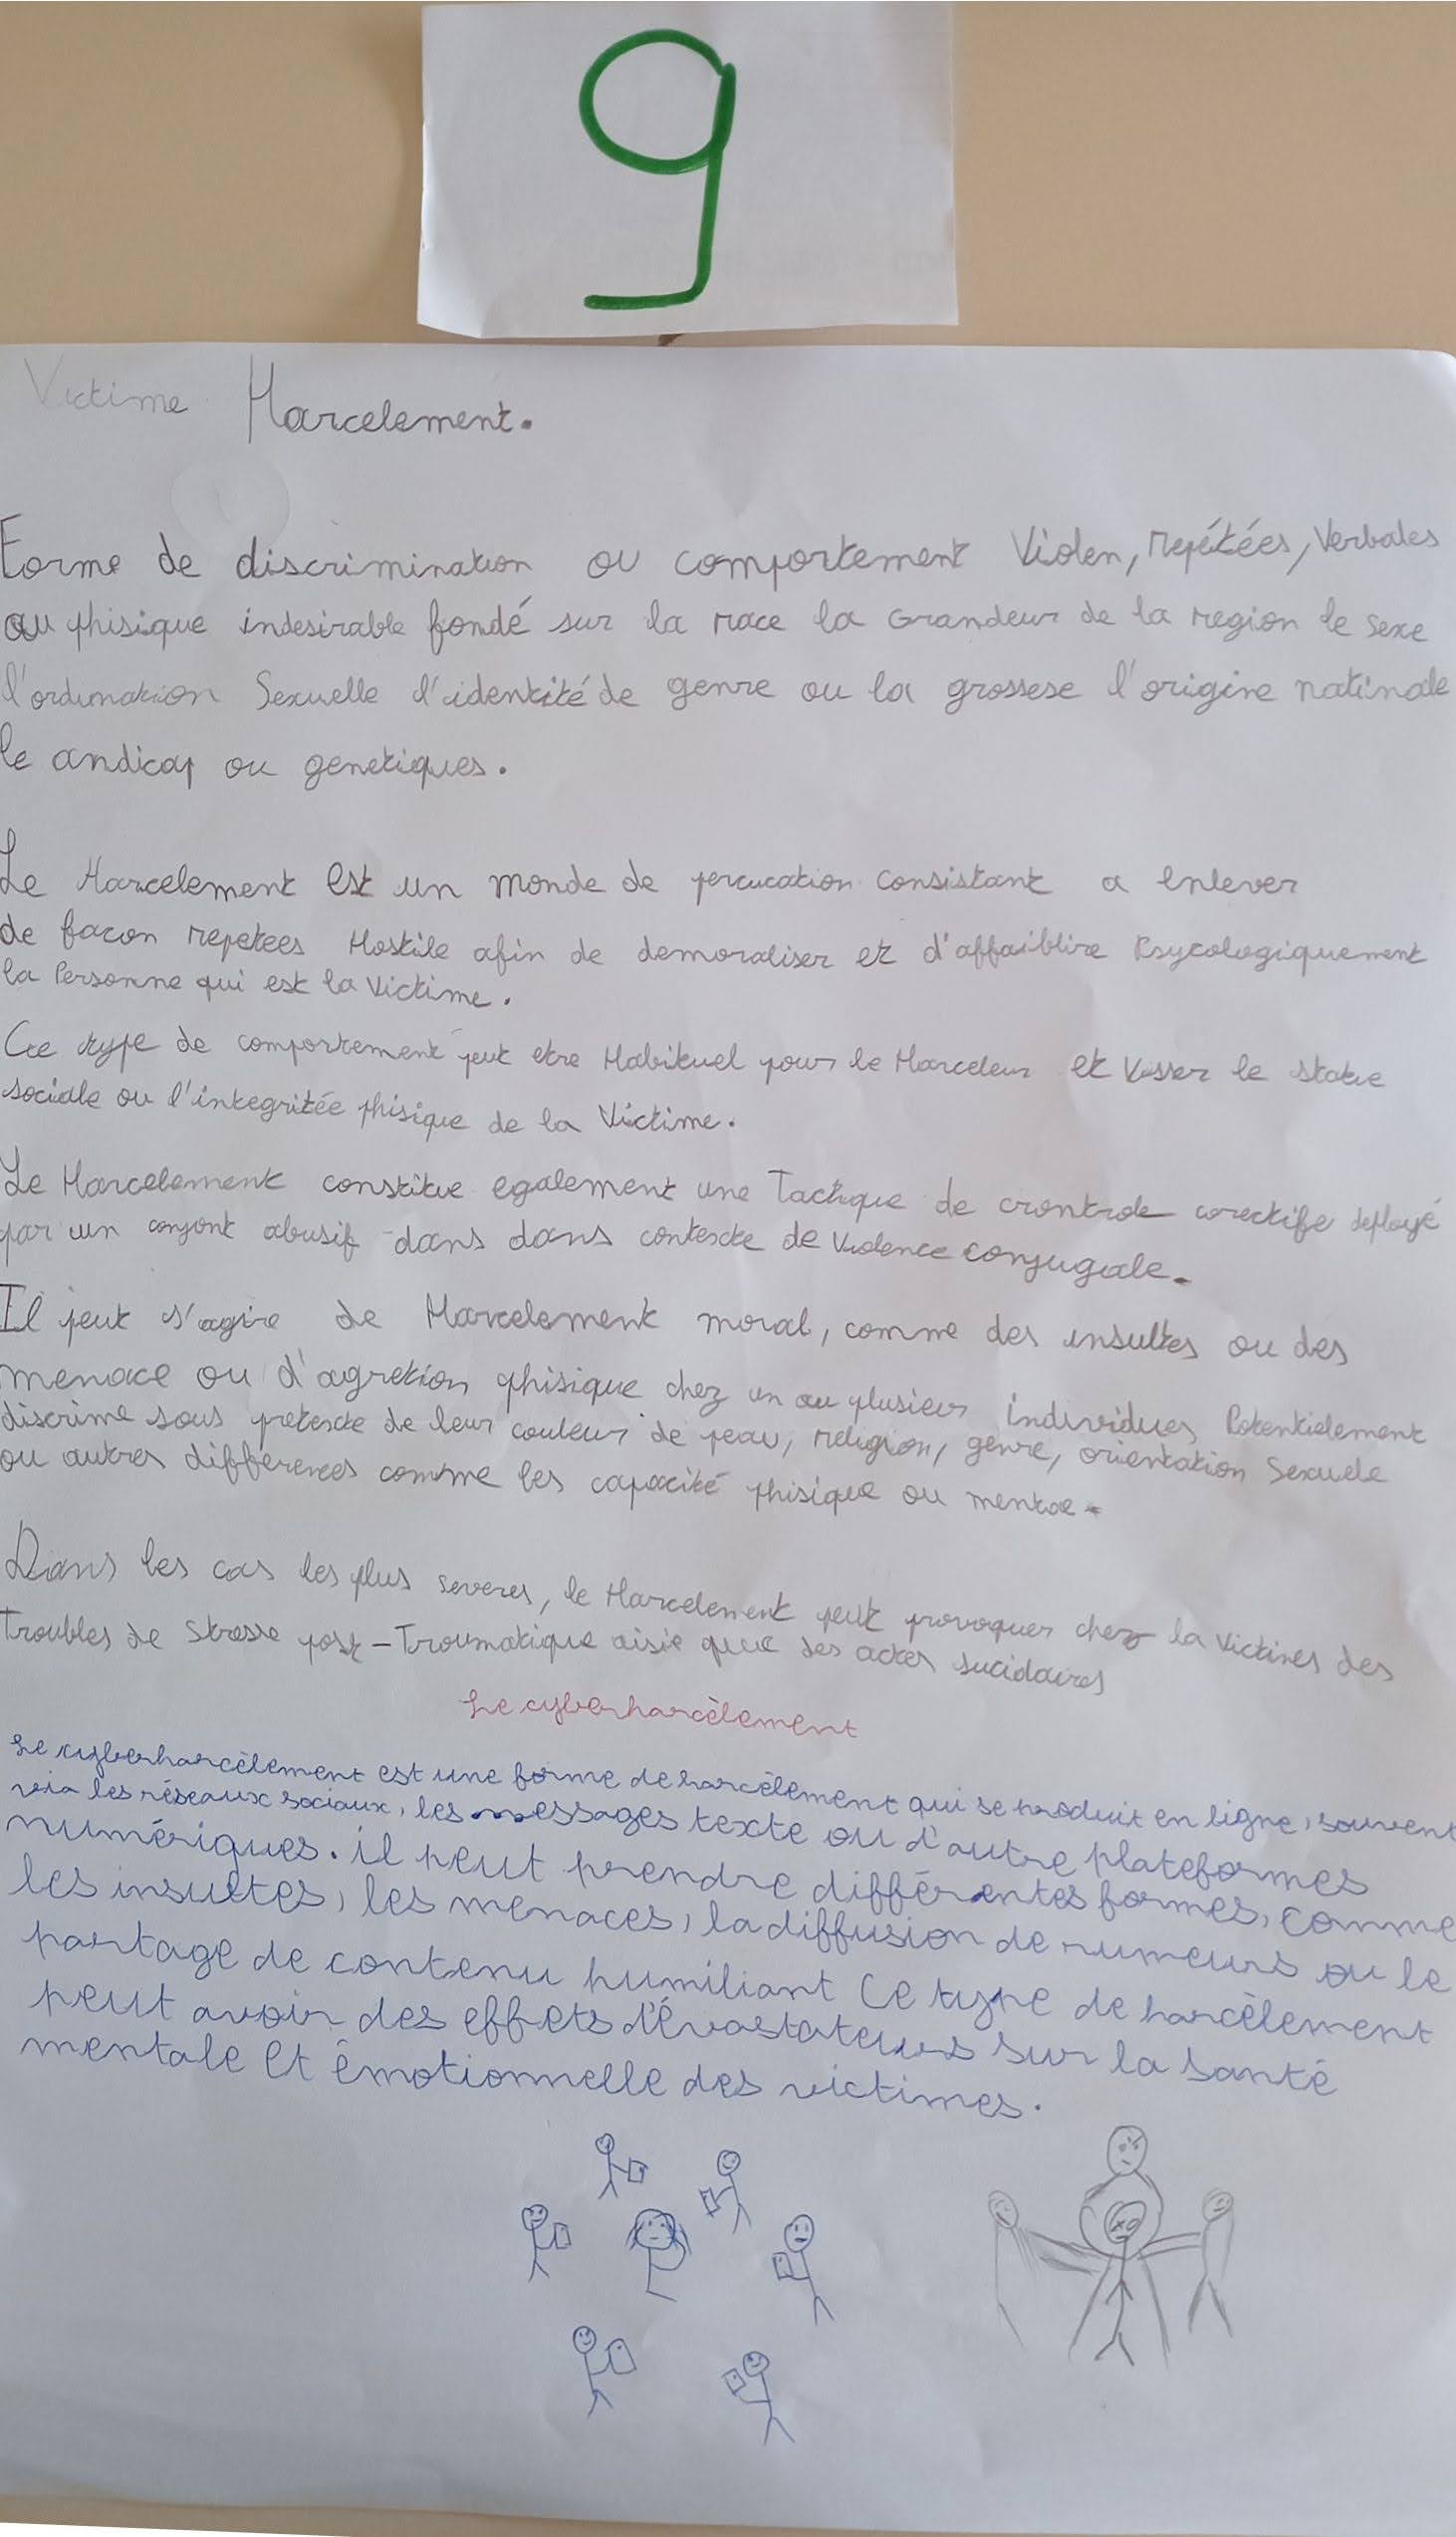 9
Victime Harcelement.
Forme de discrimination ou comportement Violen, repétées, Verbales
ou phisique indesirable fondé sur la race la Grandeur de la region le sexe
Sexuelle l'identité de genre ou la grossese l'origine nationale
le andicap ou genetiques.
Le Harcelement est un monde de percucation consistant a enlever
de facon repetees Hostile afin de demoraliser et d'affaiblire Psycologiquement
la Personne qui est la victime.
Ce type de comportement peut etre Habituel pour le Harceleur et Visser le statue
sociale ou l'integritée phisique de la Victime.
Le Harcelement constitue egalement une Tactique de crontrole corectife deployé
par un conjont abusif dans dans contexte de Violence conjugale.
Il peut s'agire de Harcelement moral, comme des insultes ou des
menace ou d'agretion phisique chez un ou plusieur individues Potentielement
discrime sous pretexte de leur couleur de peau, religion, genre, orientation Sexuele
ou autres differences comme les capacité phisique ou mentae.
Dans les cas les plus severes, le Harcelement peut provoquer chez la victimes des
Troubles de Stresse post-Troumatique aisie que des actes sucidaires
Le cyberharcèlement
Le cyberharcèlement est une forme de harcèlement qui se produit en ligne, souvent
via les réseaux sociaux, les messages texte ou d'autre plateformes
numériques. il peut prendre différentes formes, comme
les insultes, les menaces, la diffusion de rumeurs ou le
partage de contenu humiliant Ce type de harcèlement
peut avoir des effets dévastateurs sur la santé
mentale et émotionnelle des victimes.